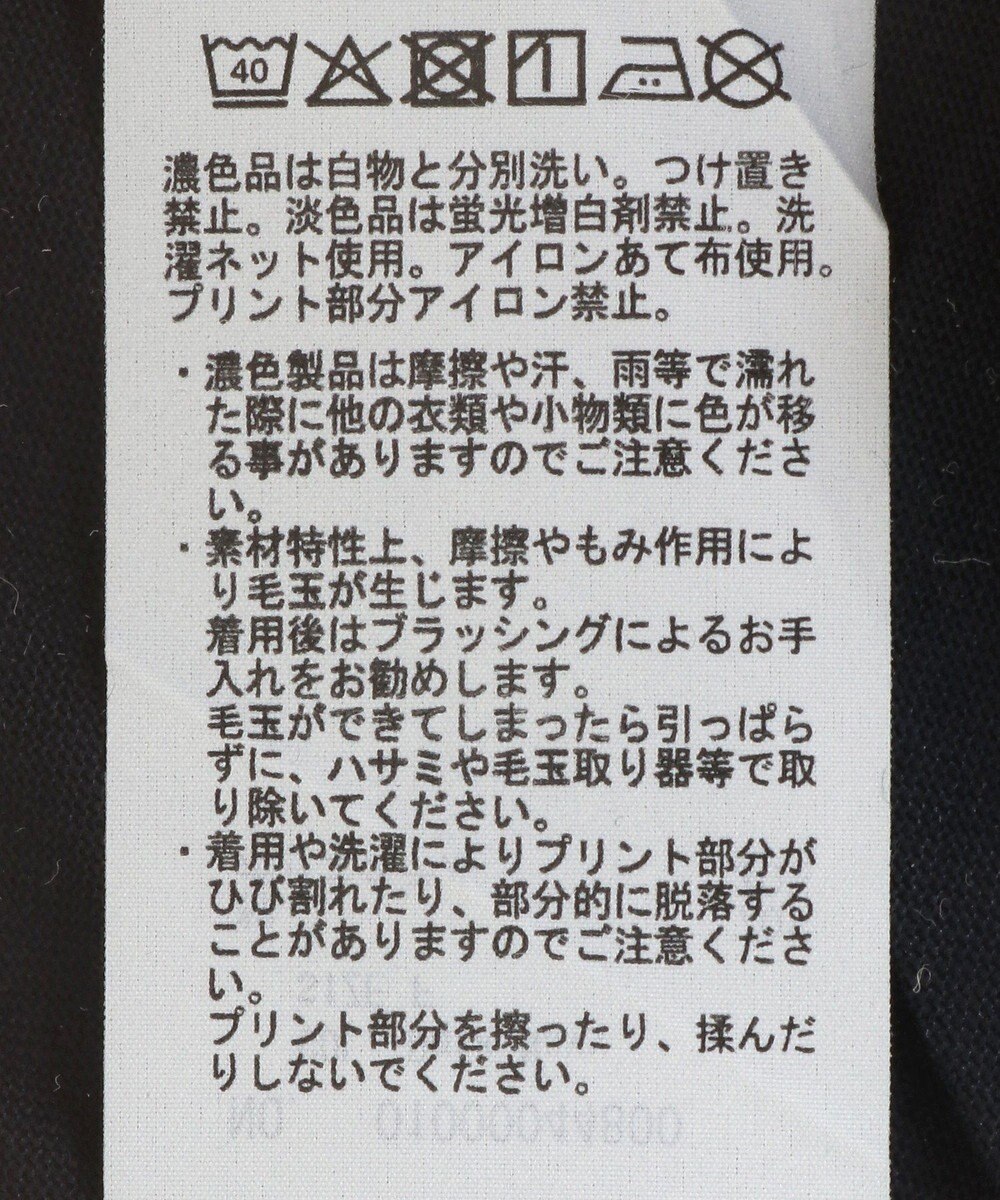 40
濃色品は白物と分別洗い。つけ置き
禁止。淡色品は蛍光増白剤禁止。洗
濯ネット使用。アイロンあて布使用。
プリント部分アイロン禁止。
・濃色製品は摩擦や汗、雨等で濡れ
た際に他の衣類や小物類に色が移
る事がありますのでご注意くださ
い。
・素材特性上、摩擦やもみ作用によ
り毛玉が生じます。
着用後はブラッシングによるお手
入れをお勧めします。
毛玉ができてしまったら引っぱら
ずに、ハサミや毛玉取り器等で取
り除いてください。
・着用や洗濯によりプリント部分が
ひび割れたり、部分的に脱落する
ことがありますのでご注意くださ
い。
プリント部分を擦ったり、揉んだ
りしないでください。